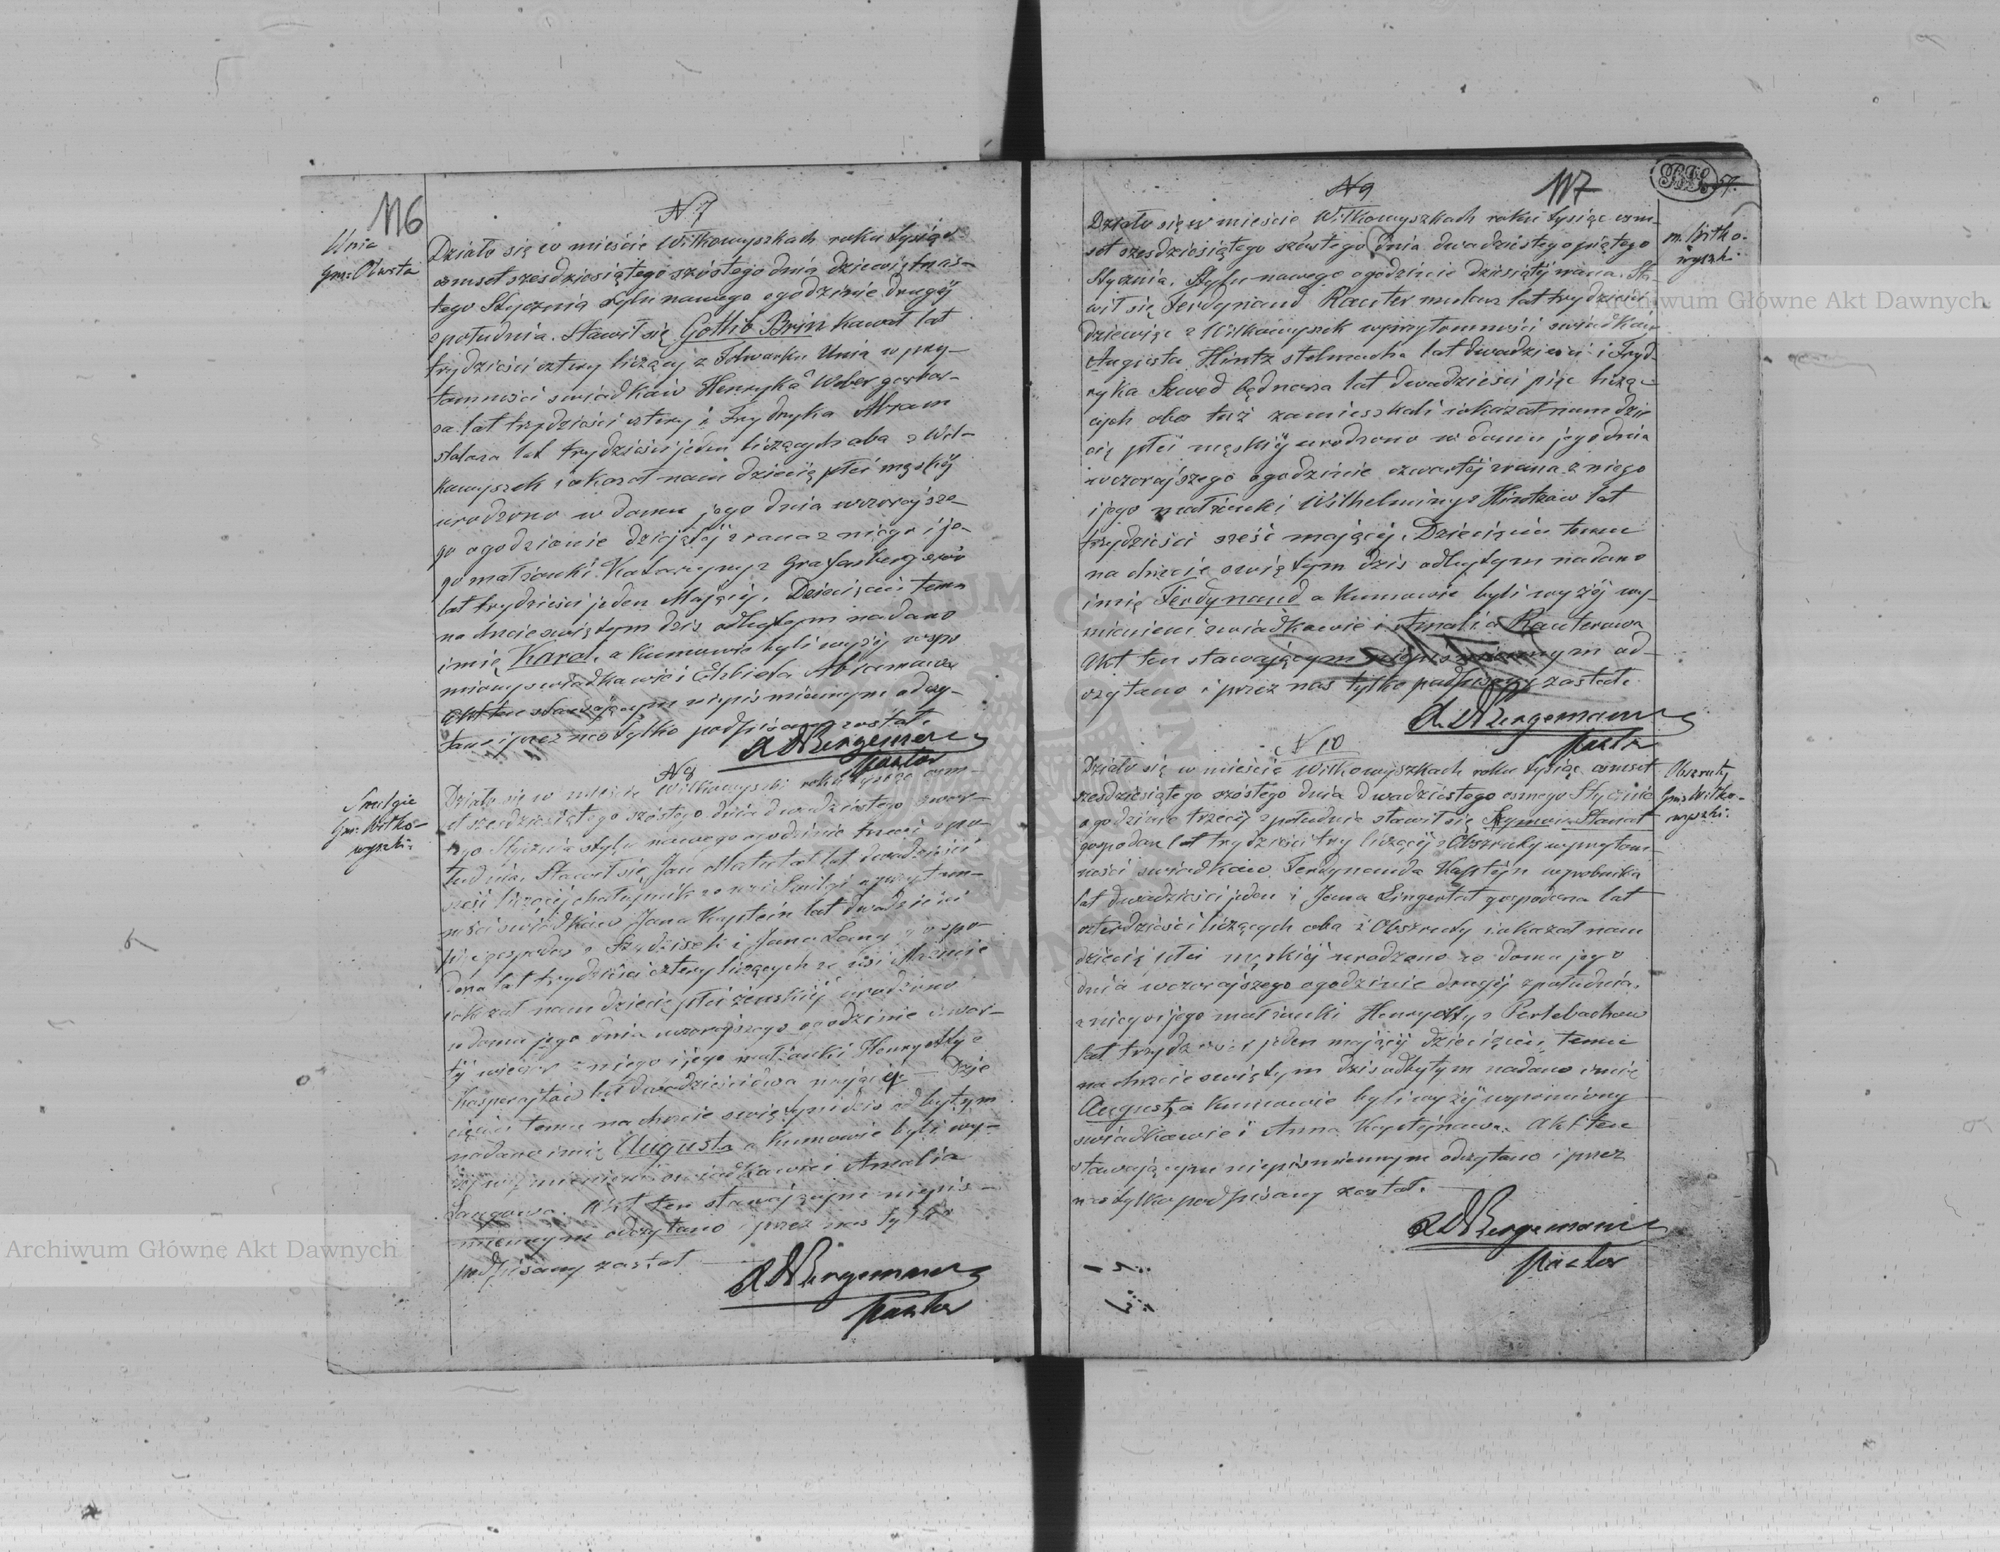 116
Unia
Gm: Olwita
N 7
Działo się w mieście Wiłkowyszkach roku tysiąc
ośmset szesdziesiątego szóstego dnia dziewiętnas-
tego Stycznia stylu nowego o godzinie drugiéj
z południa. Stawił się Gotlib Brin kawał lat
trydzieści cztery liczący z Folwarku Unia w przy-
tomności świadków Henryka Weber garbar-
za lat trydzieści cztery i Frydryka Abram
stolarza lat trydzieści jeden liczących oba z Wił-
kowyszek i okazał nam dziecię płci męskiéj
urodzone w domu jego dnia wczorajsze-
go o godzinie dziesiątéj z rana z niego i je-
go małżonki Katarzyny z
lat trydzieści jeden mającéj. Dziecięciu temu
na chrzcie świętym dziś odbytym nadano
imię Karol, a kumowie byli wyżéj wspo
mniony świadkowie i Elżbieta Abramowa
Akt ten stawającym niepismiennym odczy-
tano i przez nas tylko podpisany został.
A W Bergemann
Pastor
Smilgie
Gm: Wiłko-
wyszki
N 8
Działo się w mieście Wiłkowyszki roku tysiąc ośm-
set szesdziesiątego szóstego dnia dwudziestego czwar-
tego Stycznia stylu nowego o godzinie trzeci z po-
łudnia. Stawił się Jan lat dwadzieści
sześć liczący chałupnik ze wsi Smilgi w przytom-
ności świadków Jana Kaptein lat dwadzieścia
pięć gospodarz z i Jana Lang gospo-
darza lat trydzieści cztery liczących ze wsi
i okazał nam dziecię płci żeńskiéj urodzone
w domu jego dnia wczorajszego o godzinie czwar-
téj wieczór z niego i jego małżonki Henryetty z
lat dwadzieścia dwa mającéj Dzie
cięciu temu na chrzcie świętym dziś odbytym
nadano imię Augusta a kumowie byli wy-
żéj wymienieni świadkowie i Amalia
Langowa. Akt ten stawającym niepis-
miennym odczytano i przez nas tylko
podpisany został
A W Bergemann
Pastor
N 9
117
m. Wiłko-
wyszki
Działo się w mieście Wiłkowyszkach roku tysiąc ośm-
set szesdziesiątego szóstego dnia dwudziestego piątego
Stycznia, Stylu nowego o godzinie dziesiątéj z rana. Sta-
wił się Ferdynand Rauter mularz lat trydzieści
dziewięć z Wiłkowyszek w przytomności świadków
Augusta Hintz stelmacha lat dwadzieści i Fryd-
ryka Szwed bednarza lat dwadzieści pięć liczą-
cych oba tuż zamieszkali i okazał nam dzie
cię płci męskiéj urodzone w domu jego dnia
wczorajszego o godzinie czwartéj z rana z niego
i jego małżonki Wilhelminy z Hintzow lat
trzydzieści sześć mającéj. Dziecięciu temu
na chrzcie świętym dziś odbytym nadano
imię Ferdynand a kumowie byli wyżéj wy-
mienieni świadkowie i Amalia Rauterowa
Akt ten stawającym niepismiennym od-
czytano i przez nas tylko podpisany został.
A W Bergemann
Pastor
N 10
Obszruty
Gm: Wiłko-
wyszki.
Działo się w mieście Wiłkowyszkach roku tysiąc ośmset
szesdziesiątego szóstego dnia dwadziestego osmego Stycznia
o godzinie trzeciéj z południa stawił się Szymon Stanat
gospodarz lat trydzieści try liczący z Obszruty w przytom-
ności świadków Ferdynanda Kaptejn wyrobnika
lat dwadzieści jeden i Jana Lingertat gospodarza lat
czterdzieści liczących oba z Obszruty i okazał nam
dziecię płci męskiéj urodzone w domu jego
dnia wczorajszego o godzinie drugiéj z południa.
z niego i jego małżonki Henryetty z Perlebachow
lat trzydzieści jeden mającéj dziecięciu temu
na chrzcie świętym dziś odbytym nadano imię
August, a kumowie byli wyżéj wspomniony
świadkowie i Anna Kaptejnowa. Akt ten
stawającym niepismiennym odczytano i przez
nas tylko podpisany został.
A W Bergemann
Pastor
Archiwum Główne Akt Dawnych
Archiwum Główne Akt Dawnych